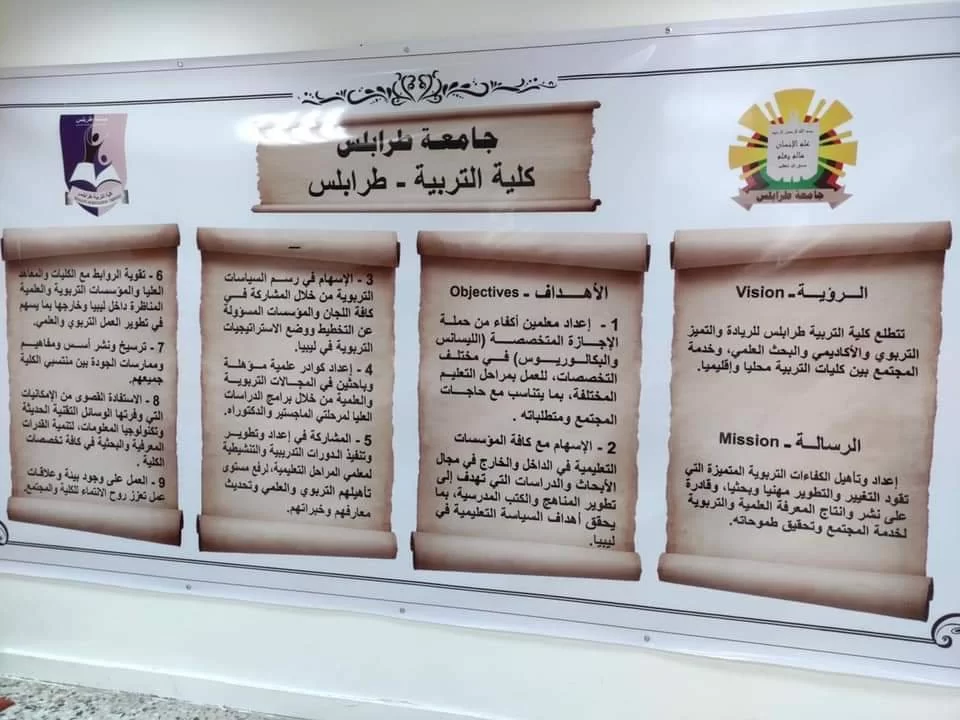 جامعة طرابلس
كلية التربية - طرابلس
علم الإنسان
مالم يعلم
جامعة طرابلس
جامعة طرابلس
كلية التربية طرابلس
الرؤية - Vision
تتطلع كلية التربية طرابلس للريادة والتميز
التربوي والأكاديمي والبحث العلمي، وخدمة
المجتمع بين كليات التربية محليا وإقليميا.
الرسالة - Mission
إعداد وتأهيل الكفاءات التربوية المتميزة التي
تقود التغيير والتطوير مهنيا وبحثيا، وقادرة
على نشر وانتاج المعرفة العلمية والتربوية
لخدمة المجتمع وتحقيق طموحاته.
الأهداف - Objectives
1 - إعداد معلمين أكفاء من حملة
الإجازة المتخصصة (الليسانس
والبكالوريوس) في مختلف
التخصصات، للعمل بمراحل التعليم
المختلفة، بما يتناسب مع حاجات
المجتمع ومتطلباته.
2 - الإسهام مع كافة المؤسسات
التعليمية في الداخل والخارج في مجال
الأبحاث والدراسات التي تهدف إلى
تطوير المناهج والكتب المدرسية، بما
يحقق أهداف السياسة التعليمية في
ليبيا.
3 - الإسهام في رسم السياسات
التربوية من خلال المشاركة في
كافة اللجان والمؤسسات المسؤولة
عن التخطيط ووضع الاستراتيجيات
التربوية في ليبيا.
4 - إعداد كوادر علمية مؤهلة
وباحثين في المجالات التربوية
والعلمية من خلال برامج الدراسات
العليا لمرحلتي الماجستير والدكتوراه.
5 - المشاركة في إعداد وتطوير
وتنفيذ الدورات التدريبية والتنشيطية
لمعلمي المراحل التعليمية، لرفع مستوى
تأهيلهم التربوي والعلمي وتحديث
معارفهم وخبراتهم.
6 - تقوية الروابط مع الكليات والمعاهد
العليا والمؤسسات التربوية والعلمية
المناظرة داخل ليبيا وخارجها بما يسهم
في تطوير العمل التربوي والعلمي.
7 - ترسيخ ونشر أسس ومفاهيم
وممارسات الجودة بين منتسبي الكلية
جميعهم.
8 - الاستفادة القصوى من الإمكانيات
التي وفرتها الوسائل التقنية الحديثة
وتكنولوجيا المعلومات، لتنمية القدرات
المعرفية والبحثية في كافة تخصصات
الكلية.
9 - العمل على وجود بيئة وعلاقات
عمل تعزز روح الانتماء للكلية والمجتمع.